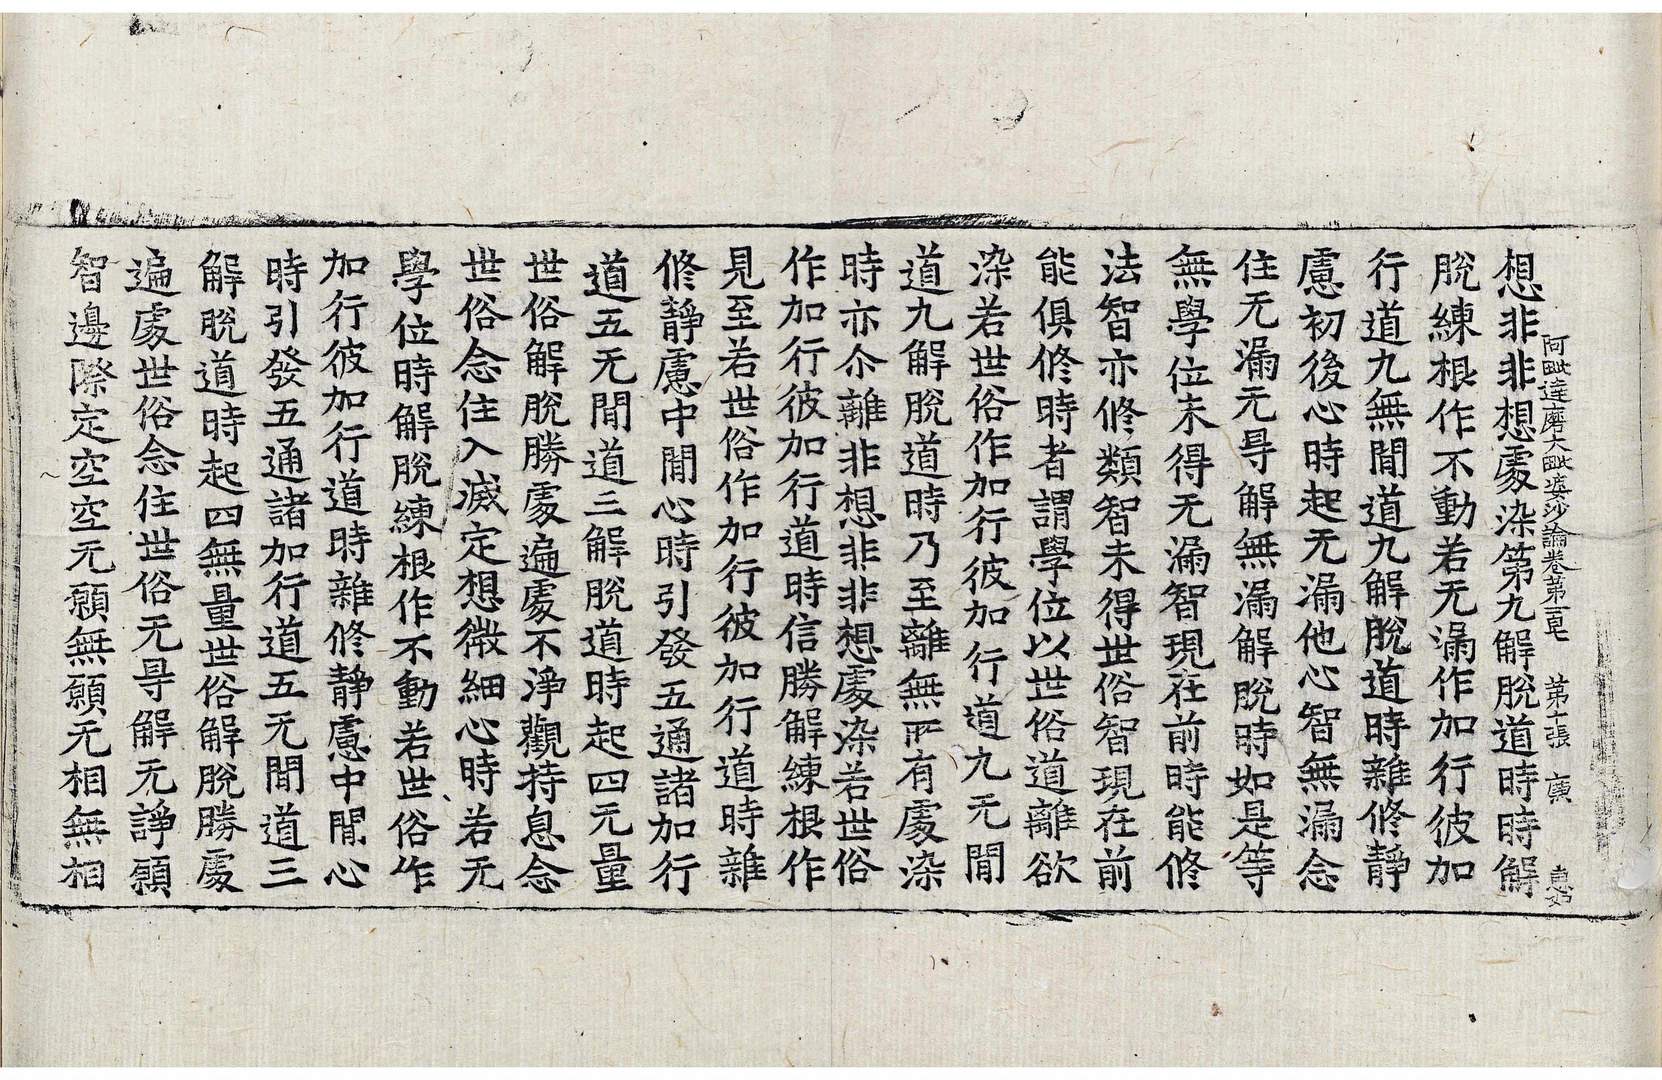 阿毗達磨大毗婆沙論卷第一百 第十張 廣 惠如
想非非想處染第九解脫道時時解
脫練根作不動若无漏作加行彼加
行道九無閒道九解脫道時雜修靜
慮初後心時起无漏他心智無漏念
住无漏无㝵解無漏解脫時如是等
無學位未得无漏智現在前時能修
法智亦修類智未得世俗智現在前
能俱修時者謂學位以世俗道離欲
染若世俗作加行彼加行道九无閒
道九解脫道時乃至離無所有處染
時亦尒離非想非非想處染若世俗
作加行彼加行道時信勝解練根作
見至若世俗作加行彼加行道時雜
修靜慮中閒心時引發五通諸加行
道五无閒道三解脫道時起四无量
世俗解脫勝處遍處不淨觀持息念
世俗念住入滅定想微細心時若无
學位時解脫練根作不動若世俗作
加行彼加行道時雜修靜慮中閒心
時引發五通諸加行道五无閒道三
解脫道時起四無量世俗解脫勝處
遍處世俗念住世俗无㝵解无諍願
智邊際定空空无願無願无相無相